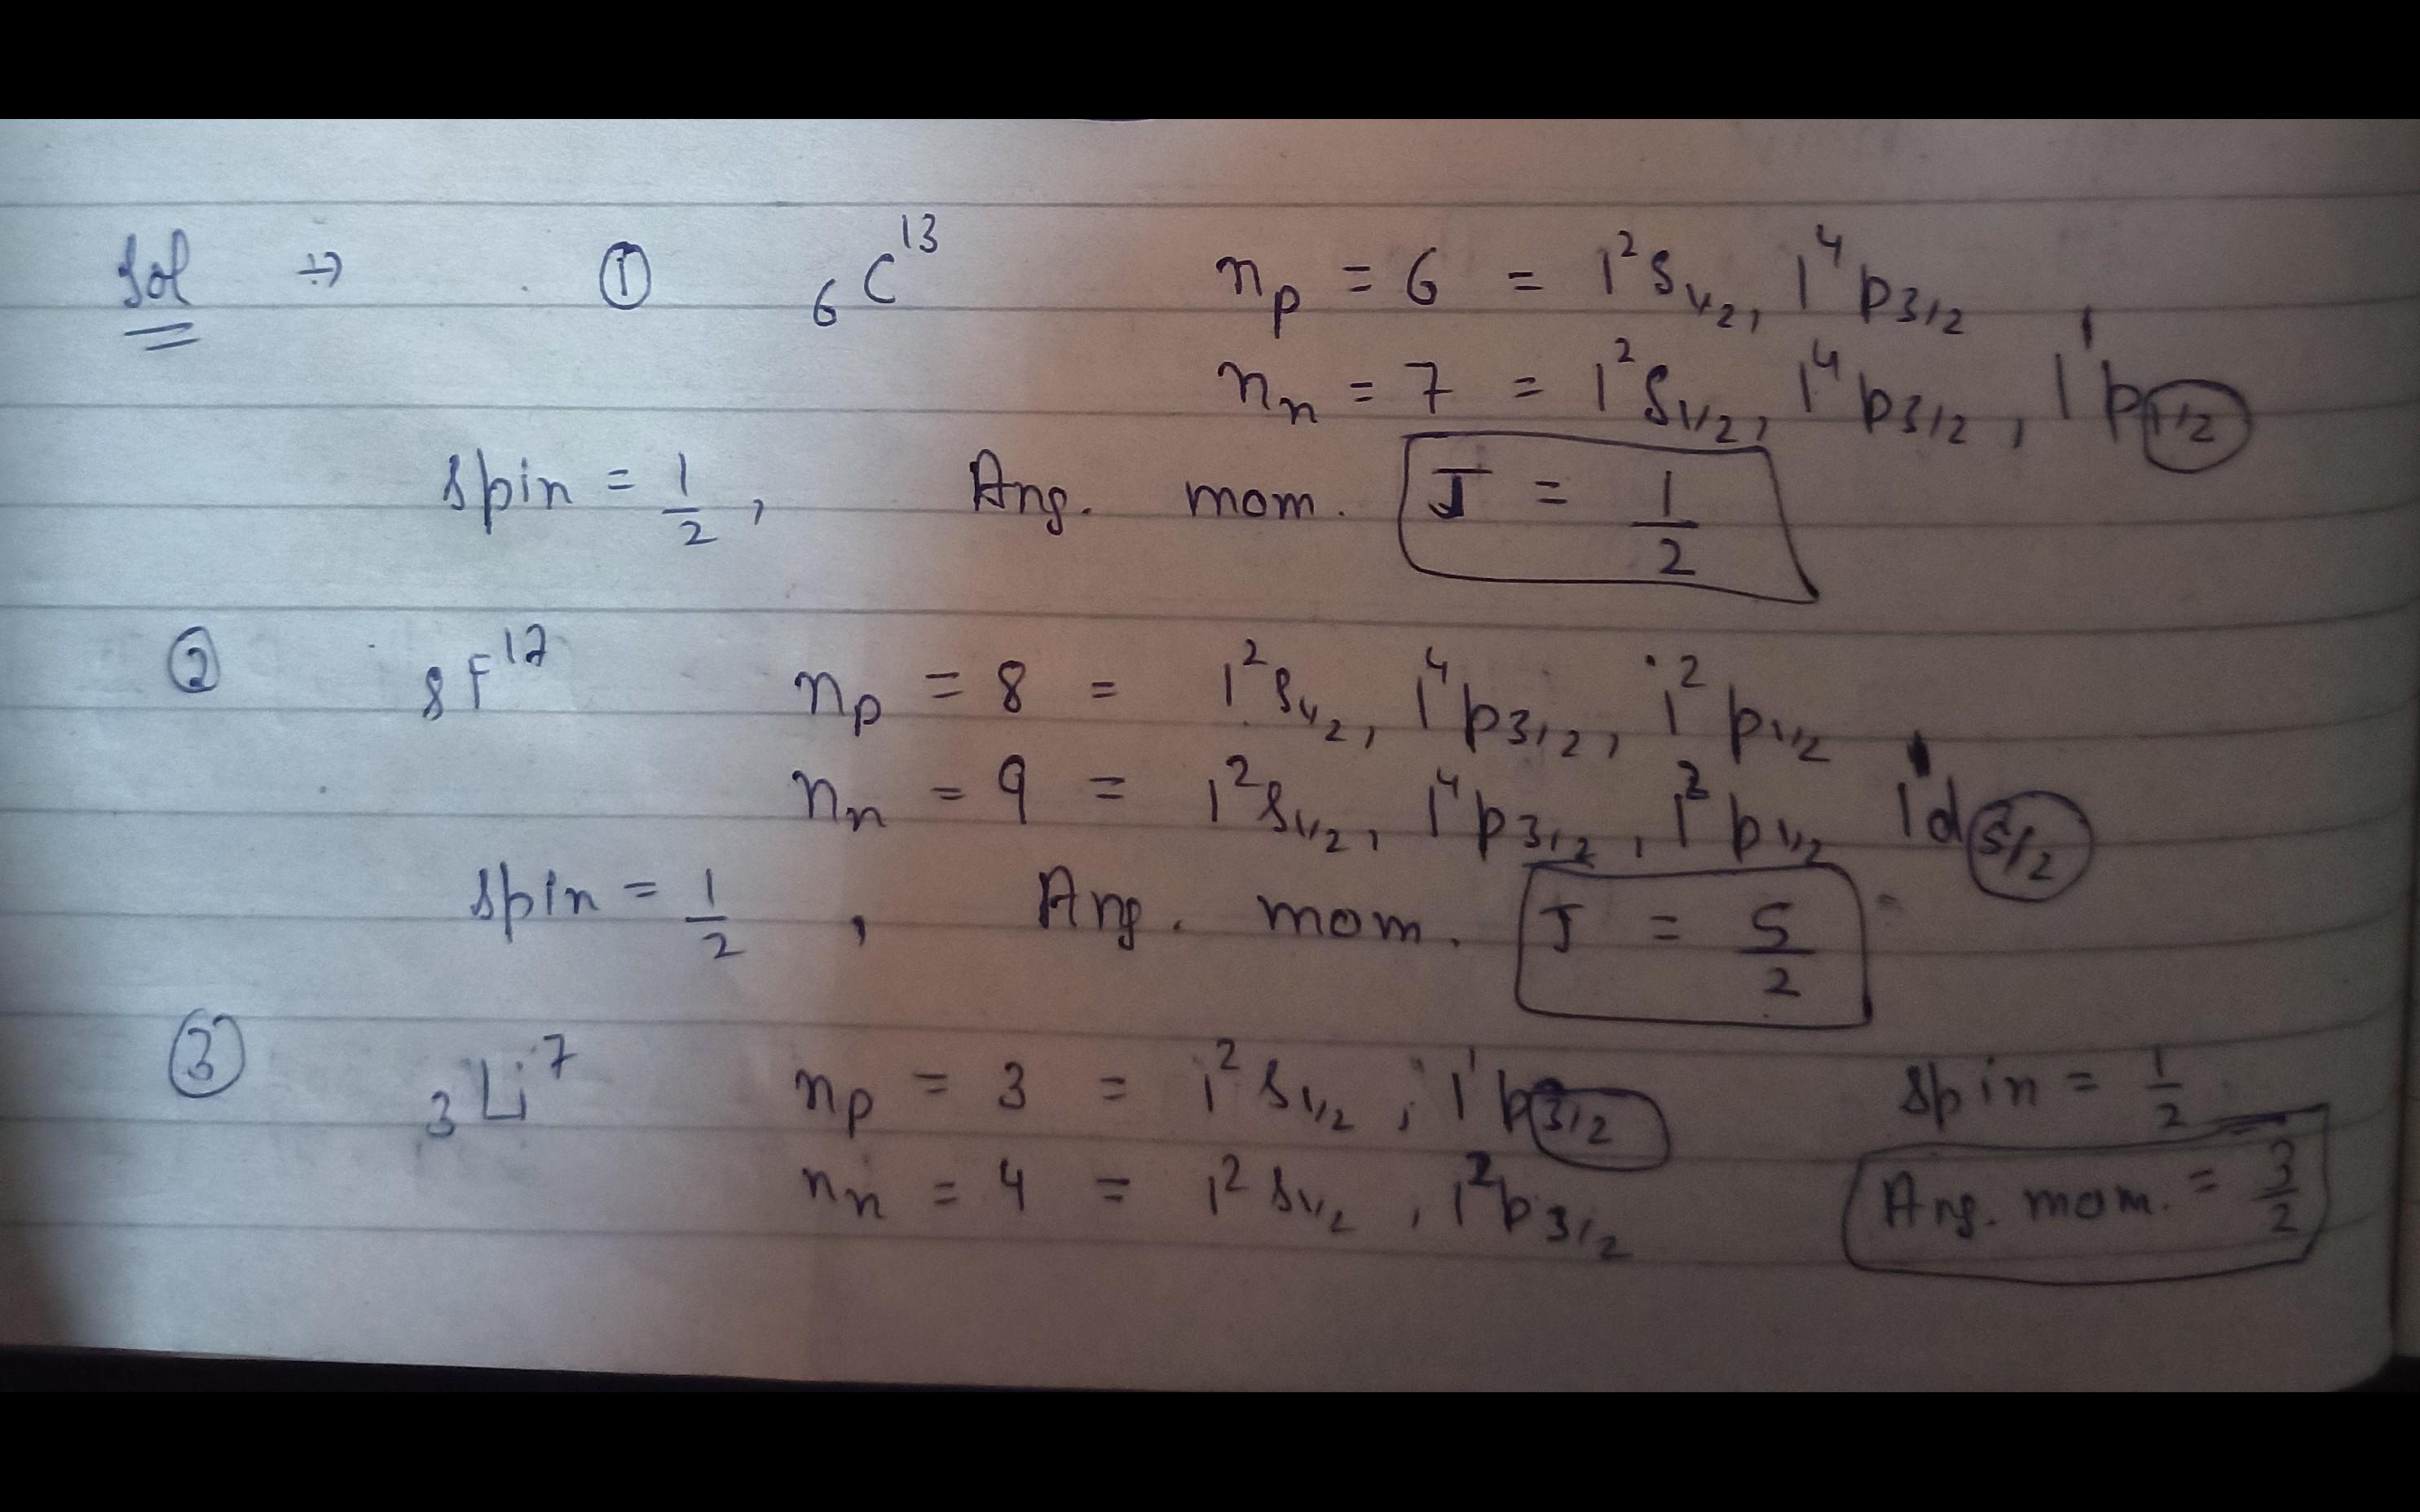 Sol ÷) ① ₆C¹³ nₚ = 6 = 1²s₁/₂, 1⁴p₃/₂
nₙ = 7 = 1²s₁/₂, 1⁴p₃/₂, 1¹p₁/₂
spin = 1/2, Ang. mom. J = 1/2
② ₈F¹⁷ nₚ = 8 = 1²s₁/₂, 1⁴p₃/₂, 1²p₁/₂
nₙ = 9 = 1²s₁/₂, 1⁴p₃/₂, 1²p₁/₂ 1¹d₅/₂
spin = 1/2, Ang. mom. J = 5/2
③ ₃Li⁷ nₚ = 3 = 1²s₁/₂, 1¹p₃/₂ spin = 1/2
nₙ = 4 = 1²s₁/₂, 1²p₃/₂ Ang. mom. = 3/2